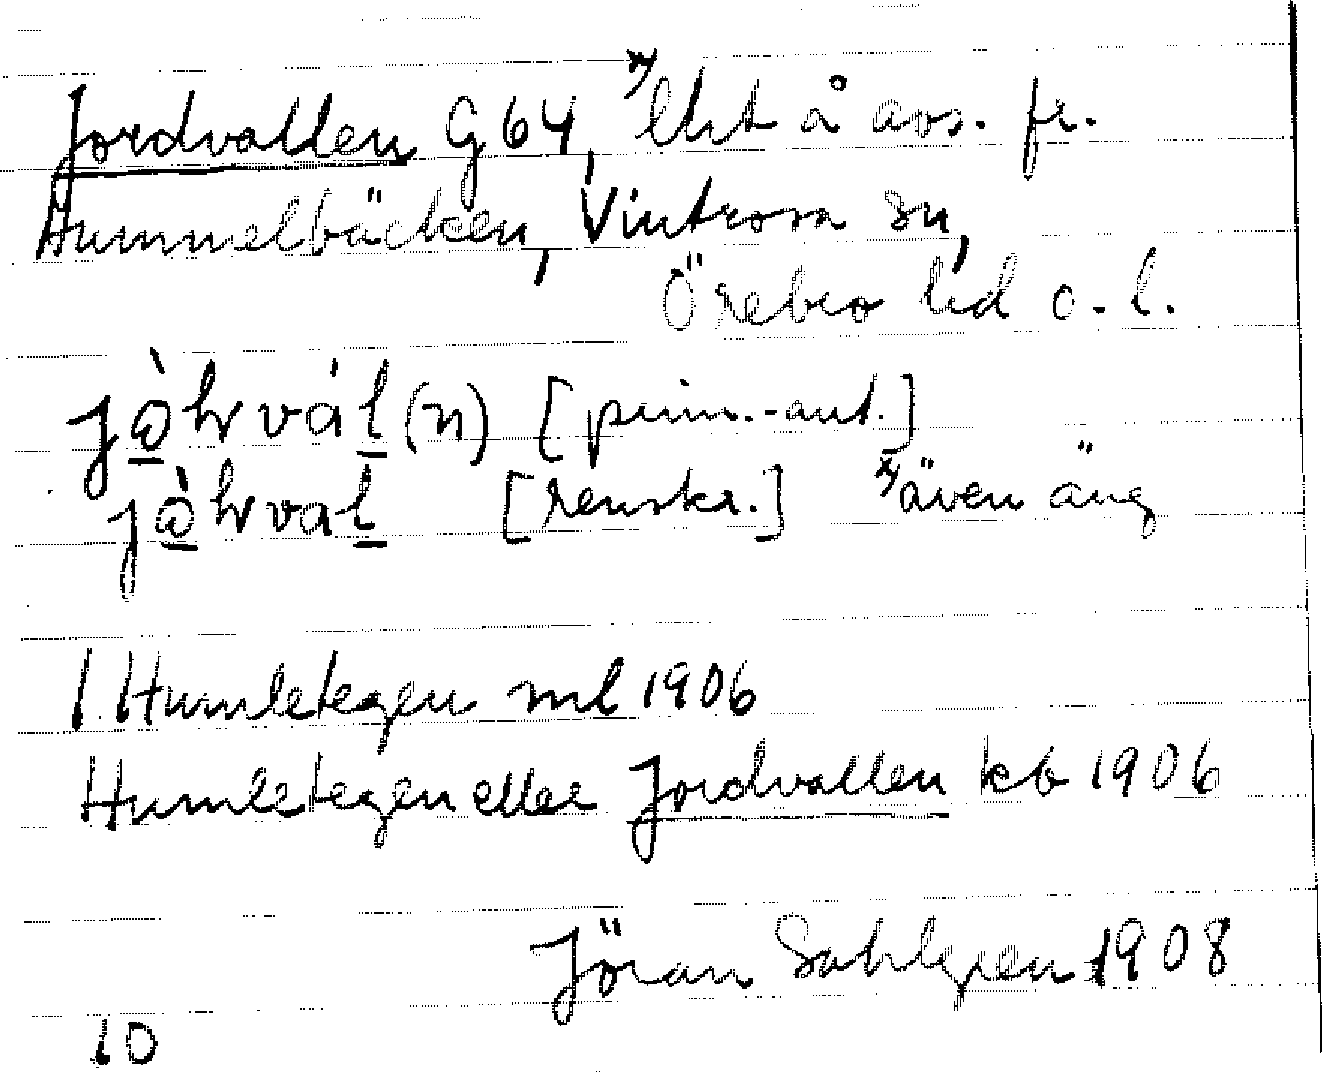 Jordvallen G 64, x) lht å avs. fr.
Hummelbäcken, Vintrosa sn,
Örebro hd Ö. l.
jò̱hrvál̲(n) [prim.-ant.]
jò̱hrval̲ [renskr.] x) även äng
1. Humletegen ml 1906
Humletegen eller Jordvallen kb 1906
Jöran Sahlgren 1908
10